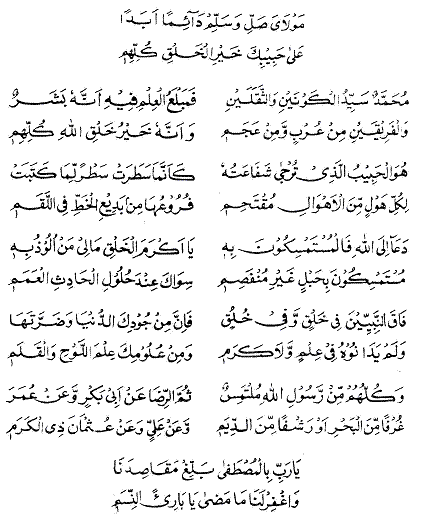 مَوْلَاىَ صَلِّ وَسَلِّمْ دَآئِمًا اَبَدًا
عَلٰى حَبِيْبِكَ خَيْرِ الْخَلْقِ كُلِّهِمِ
مُحَمَّدٌ سَيِّدُ الْكَوْنَيْنِ وَالثَّقَلَيْنِ
وَالْفَرِيْقَيْنِ مِنْ عُرْبٍ وَّمِنْ عَجَمِ
فَمَبْلَغُ الْعِلْمِ فِيْهِ اَنَّهٗ بَشَرٌ
وَاَنَّهٗ خَيْرُ خَلْقِ اللهِ كُلِّهِمِ
هُوَ الْحَبِيْبُ الَّذِىْ تُرْجٰى شَفَاعَتُهٗ
لِكُلِّ هَوْلٍ مِّنَ الْاَهْوَالِ مُقْتَحِمِ
كَاَنَّمَا سَطَرَتْ سَطْرًا لِّمَا كَتَبَتْ
فُرُوْعُهَا مِنْ بَدِيْعِ الْخَطِّ فِى اللَّقَمِ
دَعَا اِلَى اللهِ فَالْمُسْتَمْسِكُوْنَ بِهٖ
مُسْتَمْسِكُوْنَ بِحَبْلٍ غَيْرِ مُنْفَصِمِ
يَا اَكْرَمَ الْخَلْقِ مَالِىْ مَنْ اَلُوْذُ بِهٖ
سِوَاكَ عِنْدَ حُلُوْلِ الْحَادِثِ الْعَمَمِ
فَاقَ النَّبِيِّيْنَ فِىْ خَلْقٍ وَّفِىْ خُلُقٍ
وَلَمْ يُدَانُوْهُ فِىْ عِلْمٍ وَّلَا كَرَمِ
فَاِنَّ مِنْ جُوْدِكَ الدُّنْيَا وَضَرَّتَهَا
وَمِنْ عُلُوْمِكَ عِلْمَ اللَّوْحِ وَالْقَلَمِ
وَكُلُّهُمْ مِّنْ رَّسُوْلِ اللهِ مُلْتَمِسٌ
غُرَفًا مِّنَ الْبَحْرِ اَوْ رَشْفًا مِّنَ الدِّيَمِ
ثُمَّ الرِّضَا عَنْ اَبِىْ بَكْرٍ وَّعَنْ عُمَرَ
وَعَنْ عَلِيٍّ وَّعَنْ عُثْمَانَ ذِى الْكَرَمِ
يَارَبِّ بِالْمُصْطَفٰى بَلِّغْ مَقَاصِدَنَا
وَاغْفِرْلَنَا مَا مَضٰى يَا بَارِئَ النَّسَمِ